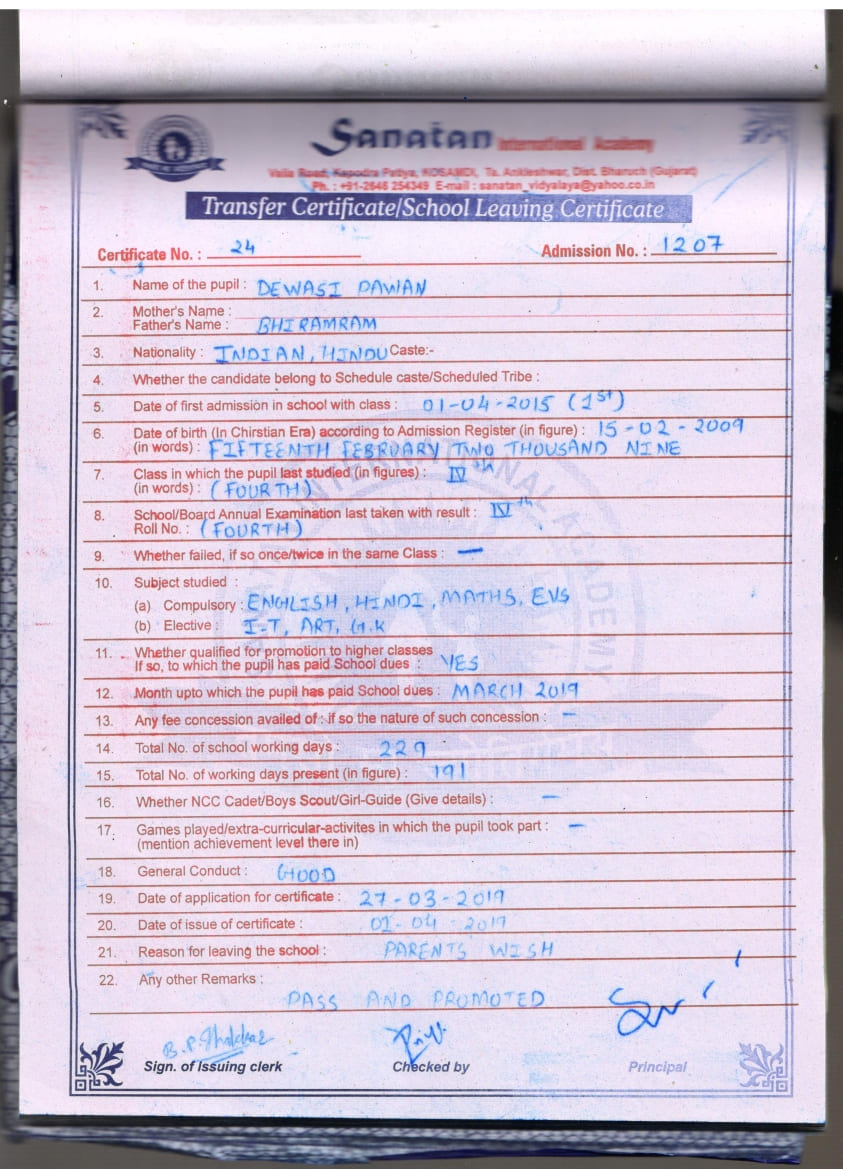 Sanatan International Academy
Valia Road, Kapodra Patiya, KOSAMDI, Ta. Ankleshwar, Dist. Bharuch (Gujarat)
Ph. : +91-2646 254349 E-mail : sanatan_vidyalaya@yahoo.co.in
Transfer Certificate/School Leaving Certificate
Certificate No. : 24 Admission No. : 1207
1. Name of the pupil : DEWASI PAWAN
2. Mother's Name :
Father's Name : BHIRAMRAM
3. Nationality : INDIAN, HINDU Caste:-
4. Whether the candidate belong to Schedule caste/Scheduled Tribe :
5. Date of first admission in school with class : 01-04-2015 (1st)
6. Date of birth (In Chirstian Era) according to Admission Register (in figure) : 15-02-2009
(in words) : FIFTEENTH FEBRUARY TWO THOUSAND NINE
7. Class in which the pupil last studied (in figures) : IVth
(in words) : (FOURTH)
8. School/Board Annual Examination last taken with result : IVth
Roll No. : (FOURTH)
9. Whether failed, if so once/twice in the same Class : —
10. Subject studied :
(a) Compulsory : ENGLISH, HINDI, MATHS, EVS
(b) Elective : I-T, ART, G.K
11. Whether qualified for promotion to higher classes
If so, to which the pupil has paid School dues : YES
12. Month upto which the pupil has paid School dues : MARCH 2019
13. Any fee concession availed of : if so the nature of such concession : —
14. Total No. of school working days : 229
15. Total No. of working days present (in figure) : 191
16. Whether NCC Cadet/Boys Scout/Girl-Guide (Give details) : —
17. Games played/extra-curricular-activites in which the pupil took part : —
(mention achievement level there in)
18. General Conduct : GOOD
19. Date of application for certificate : 27-03-2019
20. Date of issue of certificate : 01-04-2019
21. Reason for leaving the school : PARENTS WISH
22. Any other Remarks :
PASS AND PROMOTED
Sign. of Issuing clerk Checked by Principal